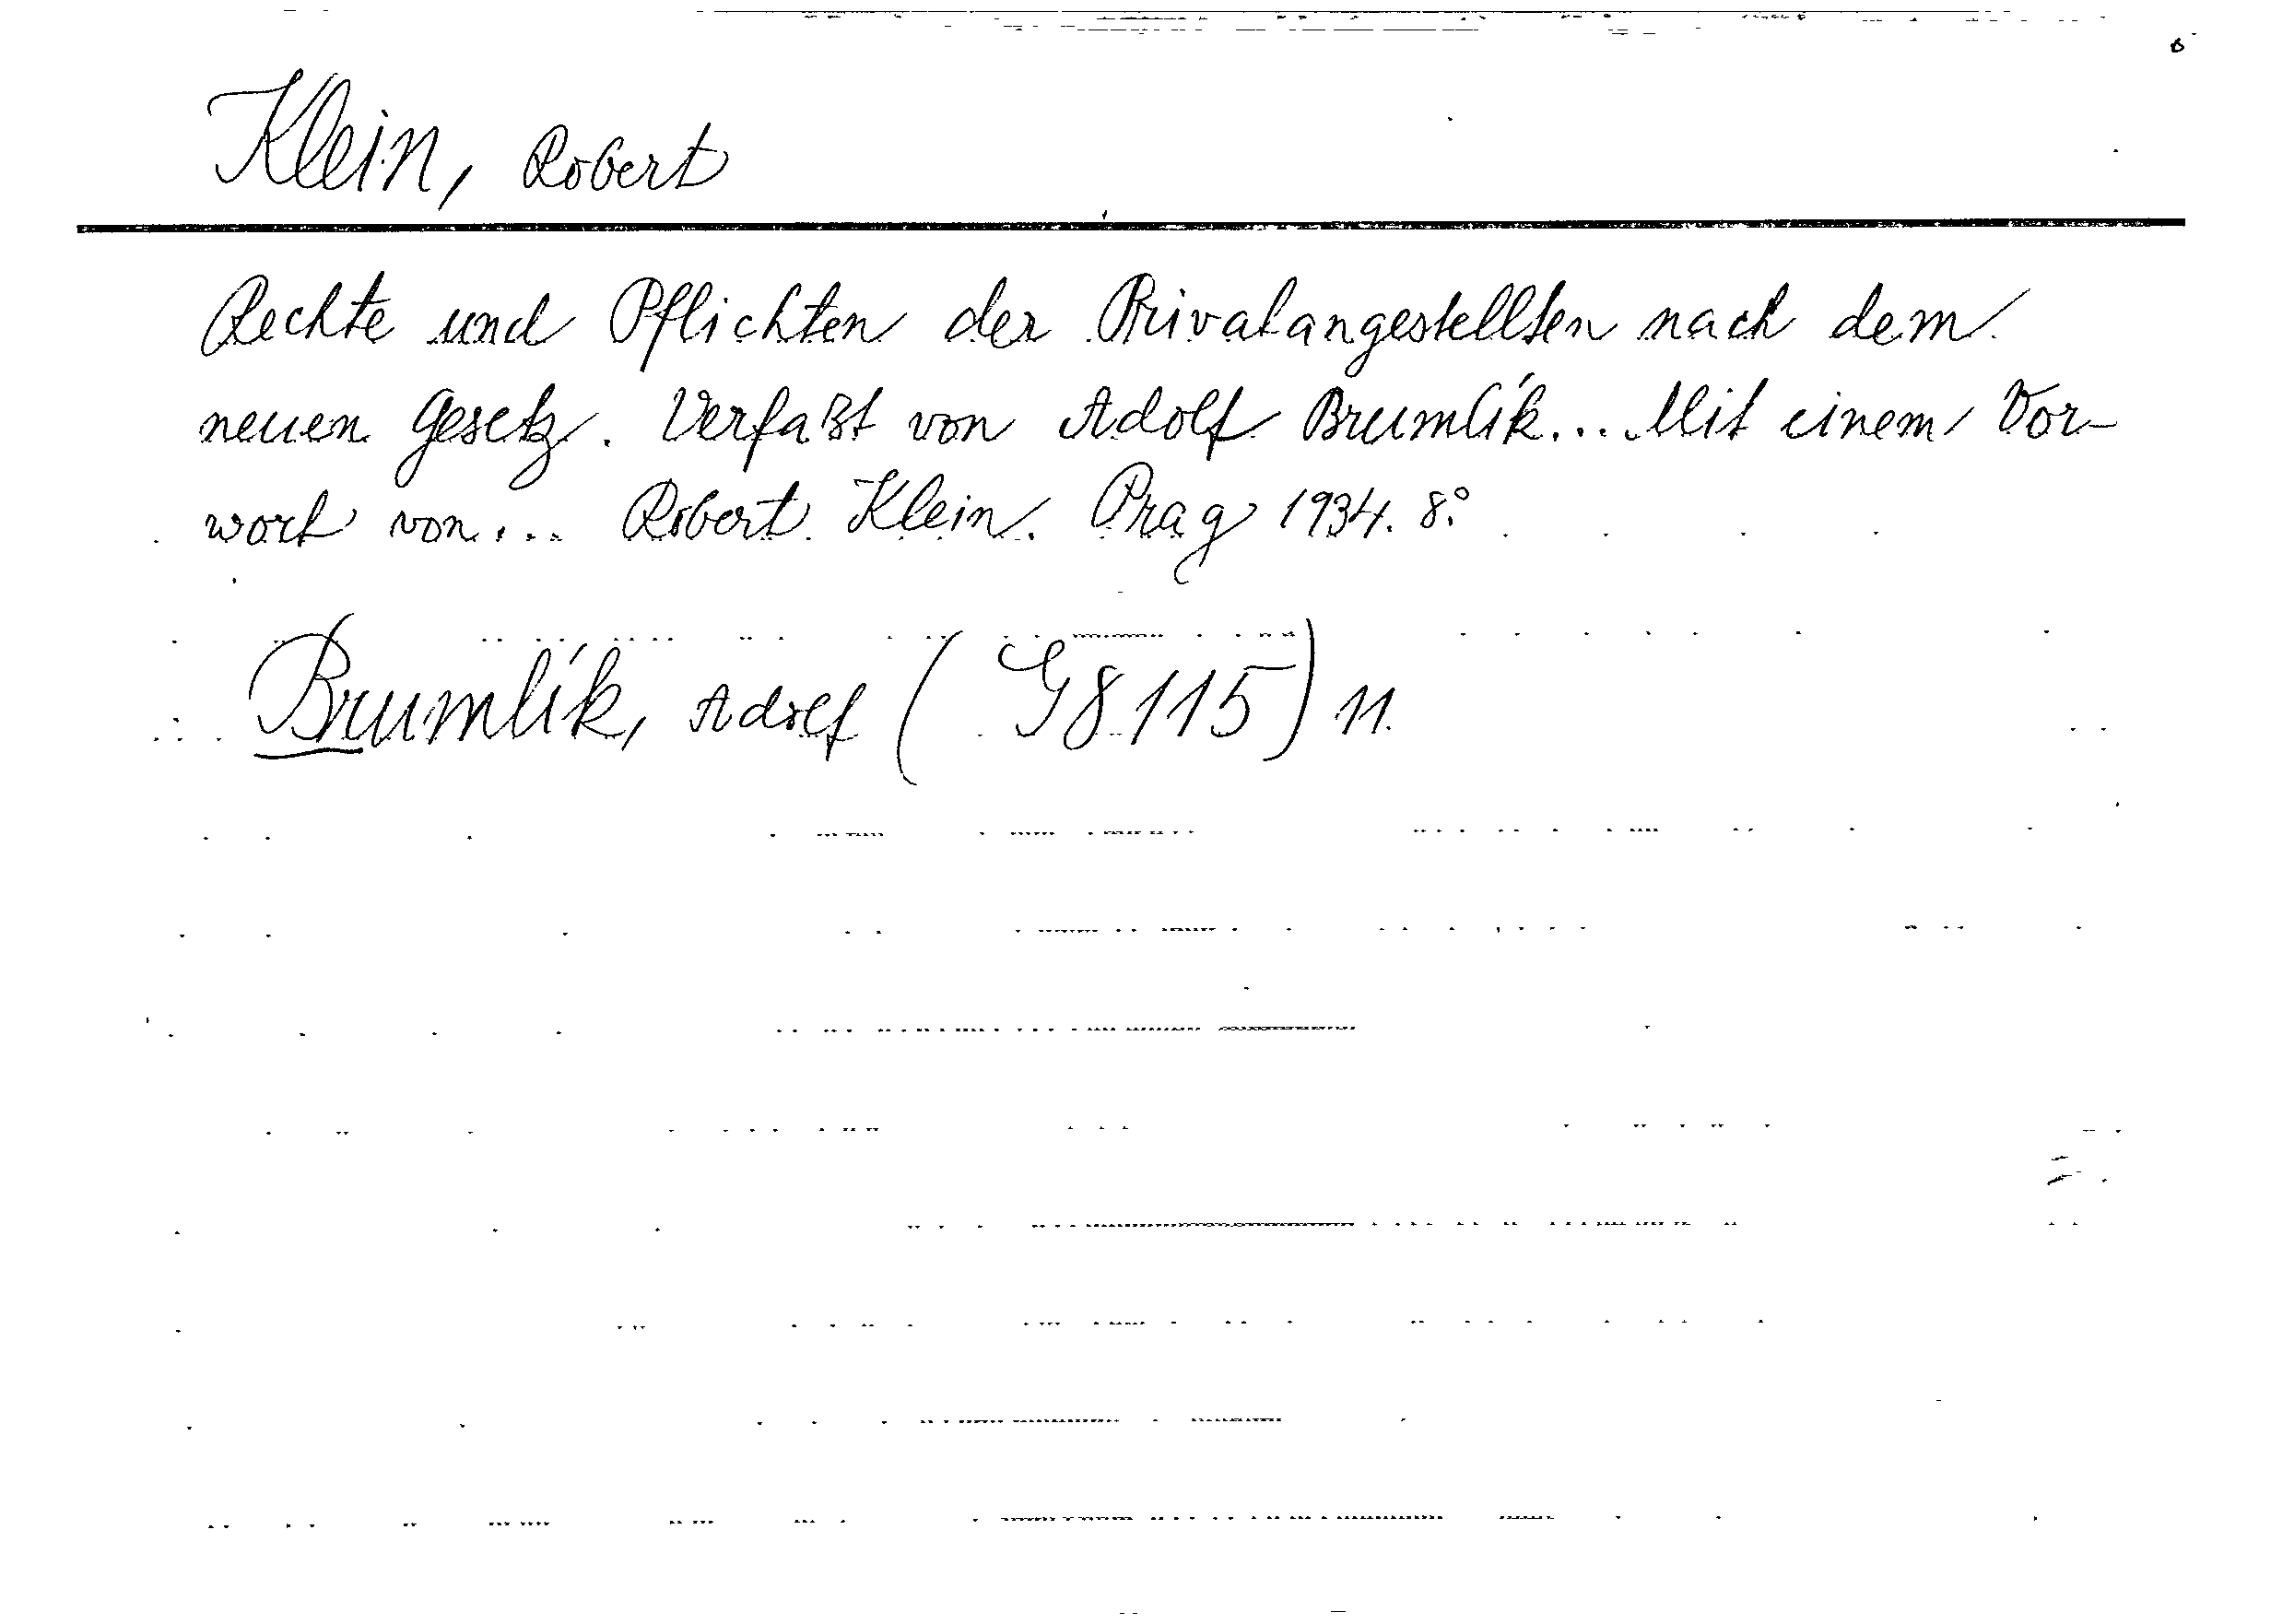 Klein, Robert
Rechte und Pflichten der Privatangestellten nach dem
neuen Gesetz. Verfaßt von Adolf Brumlík... Mit einem Vor-
wort von... Robert Klein. Prag 1934. 8.°
Brumlík, Adolf (G 8115) 11.